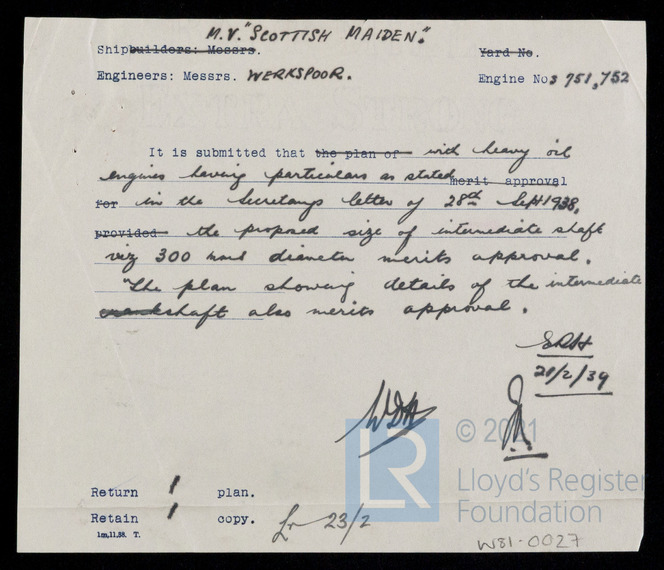 M.V. "SCOTTISH MAIDEN".
Shipbuilders: Messrs. Yard No.
Engineers: Messrs. WERKSPOOR. Engine Nos 751,752
It is submitted that the plan of with heavy oil
engines having particulars as stated merit approval
for in the Secretarys letter of 28th Sept 1938,
provided the proposed size of intermediate shaft
viz 300 mms diameter merits approval.
The plan showing details of the intermediate
crankshaft also merits approval.
21/2/39
WDH
© 2021
LR
Lloyd's Register
Foundation
Return 1 plan.
Retain 1 copy. 23/2
1m,11,38. T.
W81-0027